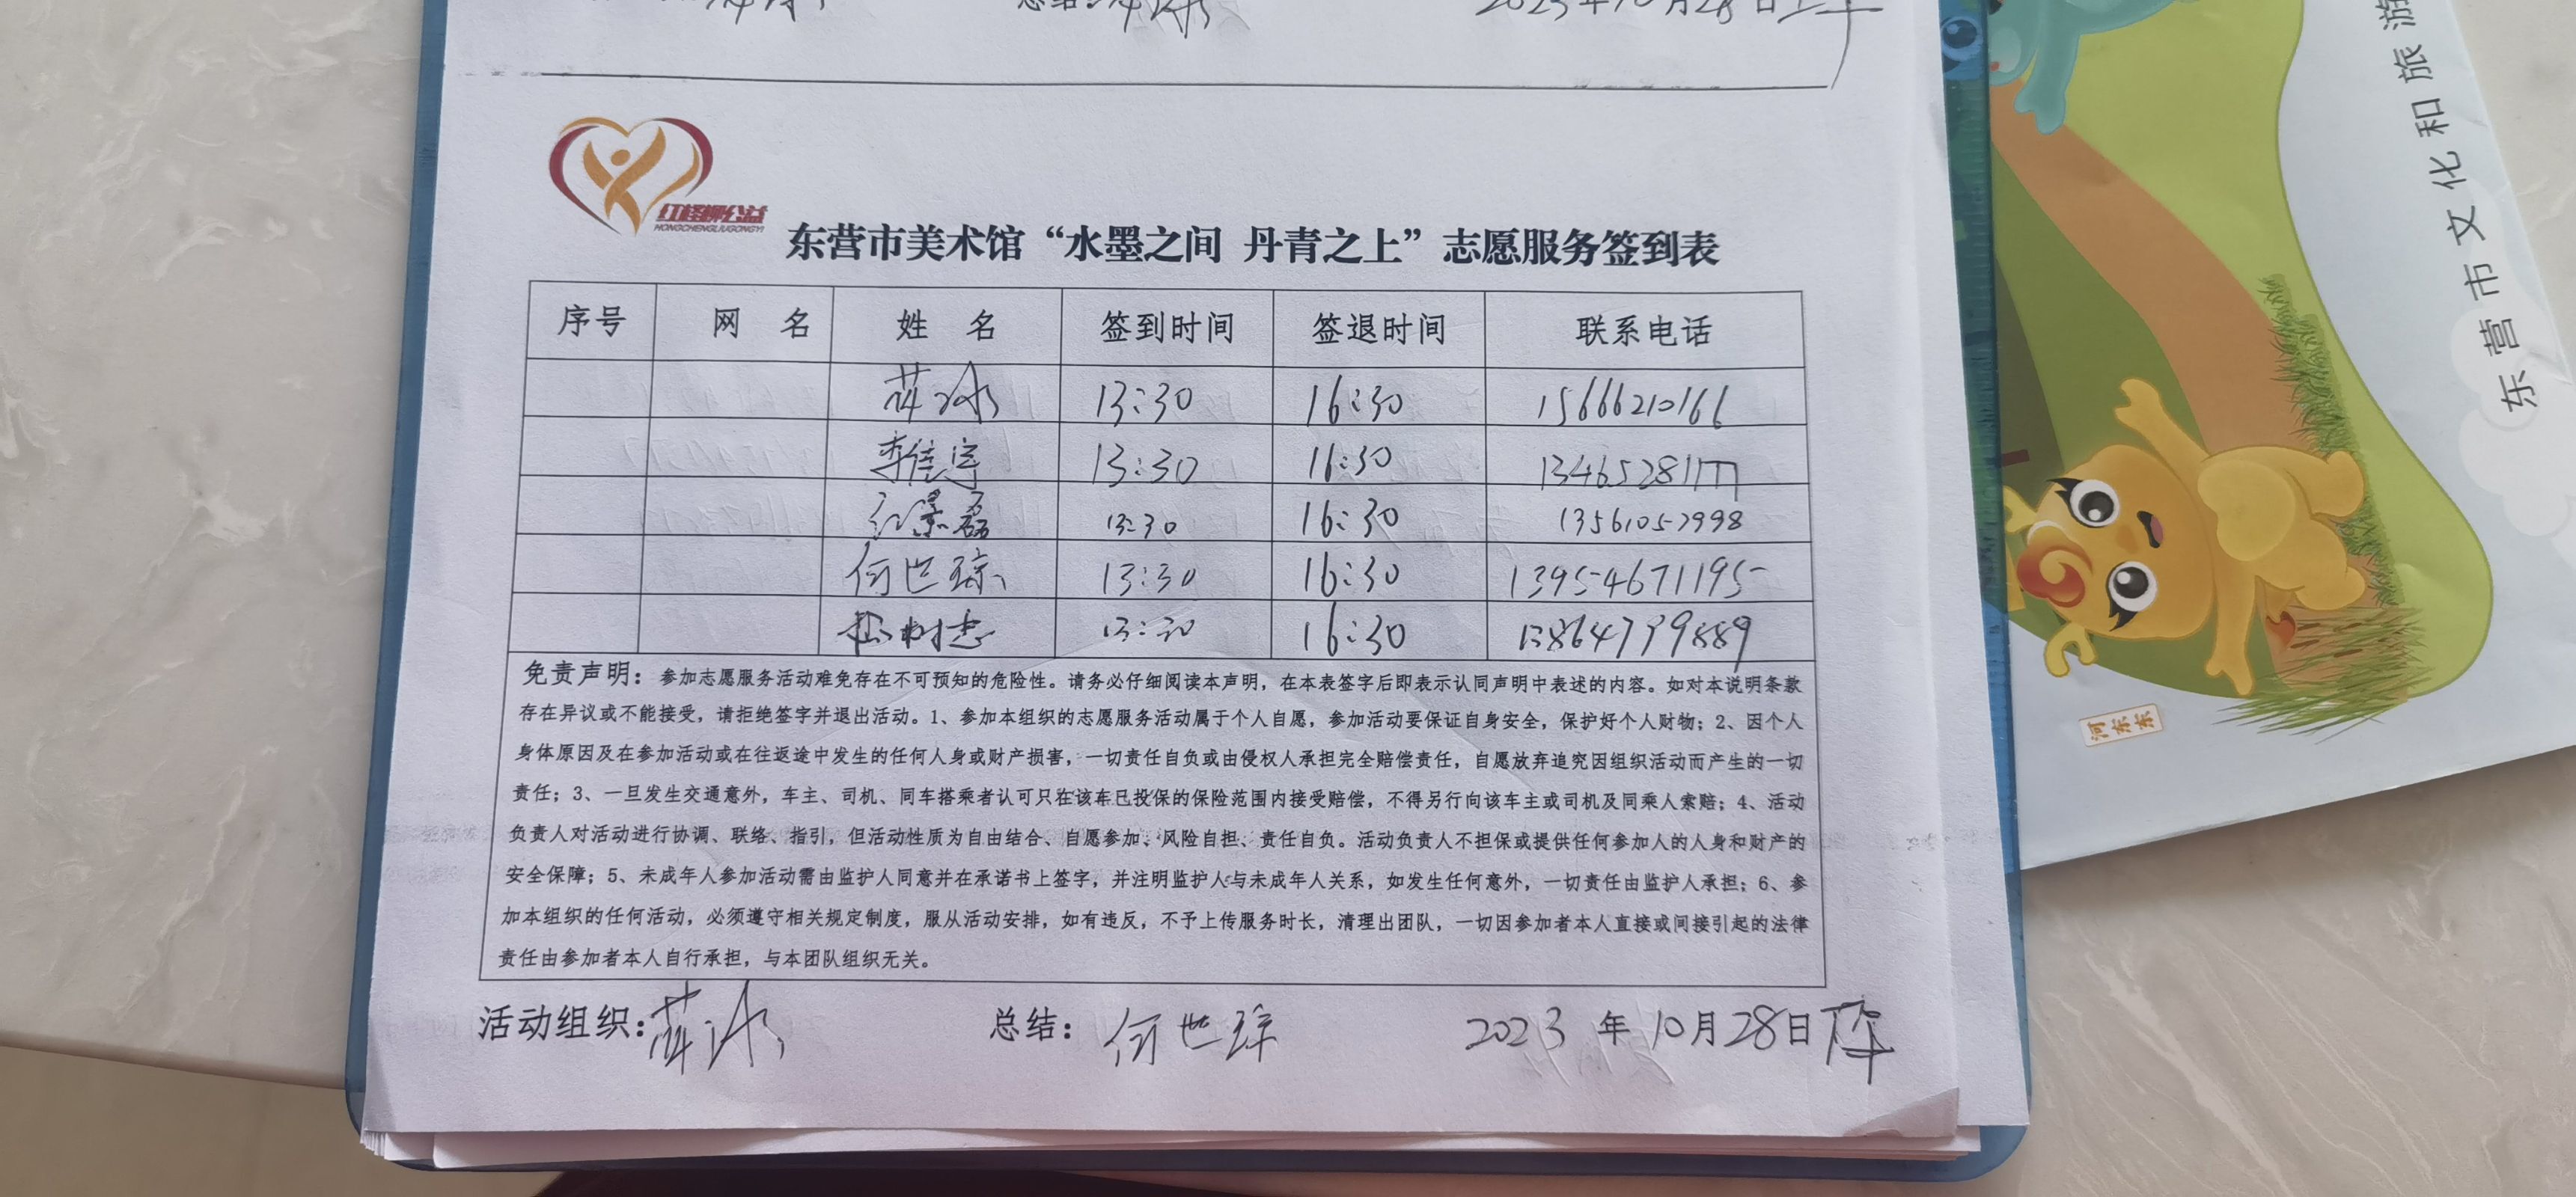 2023年10月28日上午
红柽柳公益
HONGCHENGLIUGONGYI
东营市美术馆“水墨之间 丹青之上”志愿服务签到表
序号 网 名 姓 名 签到时间 签退时间 联系电话
薛冰 13:30 16:30 15666210166
李佳宇 13:30 16:30
13:30 16:30 13561052998
何世琼 13:30 16:30 13954671195
13:30 16:30 13864799889
免责声明：参加志愿服务活动难免存在不可预知的危险性。请务必仔细阅读本声明，在本表签字后即表示认同声明中表述的内容。如对本说明条款
存在异议或不能接受，请拒绝签字并退出活动。1、参加本组织的志愿服务活动属于个人自愿，参加活动要保证自身安全，保护好个人财物；2、因个人
身体原因及在参加活动或在往返途中发生的任何人身或财产损害，一切责任自负或由侵权人承担完全赔偿责任，自愿放弃追究因组织活动而产生的一切
责任；3、一旦发生交通意外，车主、司机、同车搭乘者认可只在该车已投保的保险范围内接受赔偿，不得另行向该车主或司机及同乘人索赔；4、活动
负责人对活动进行协调、联络、指引，但活动性质为自由结合、自愿参加、风险自担、责任自负。活动负责人不担保或提供任何参加人的人身和财产的
安全保障；5、未成年人参加活动需由监护人同意并在承诺书上签字，并注明监护人与未成年人关系，如发生任何意外，一切责任由监护人承担；6、参
加本组织的任何活动，必须遵守相关规定制度，服从活动安排，如有违反，不予上传服务时长，清理出团队，一切因参加者本人直接或间接引起的法律
责任由参加者本人自行承担，与本团队组织无关。
活动组织：薛冰 总结：何世琼 2023 年 10月28日下午
东营市文化和旅游
河东东